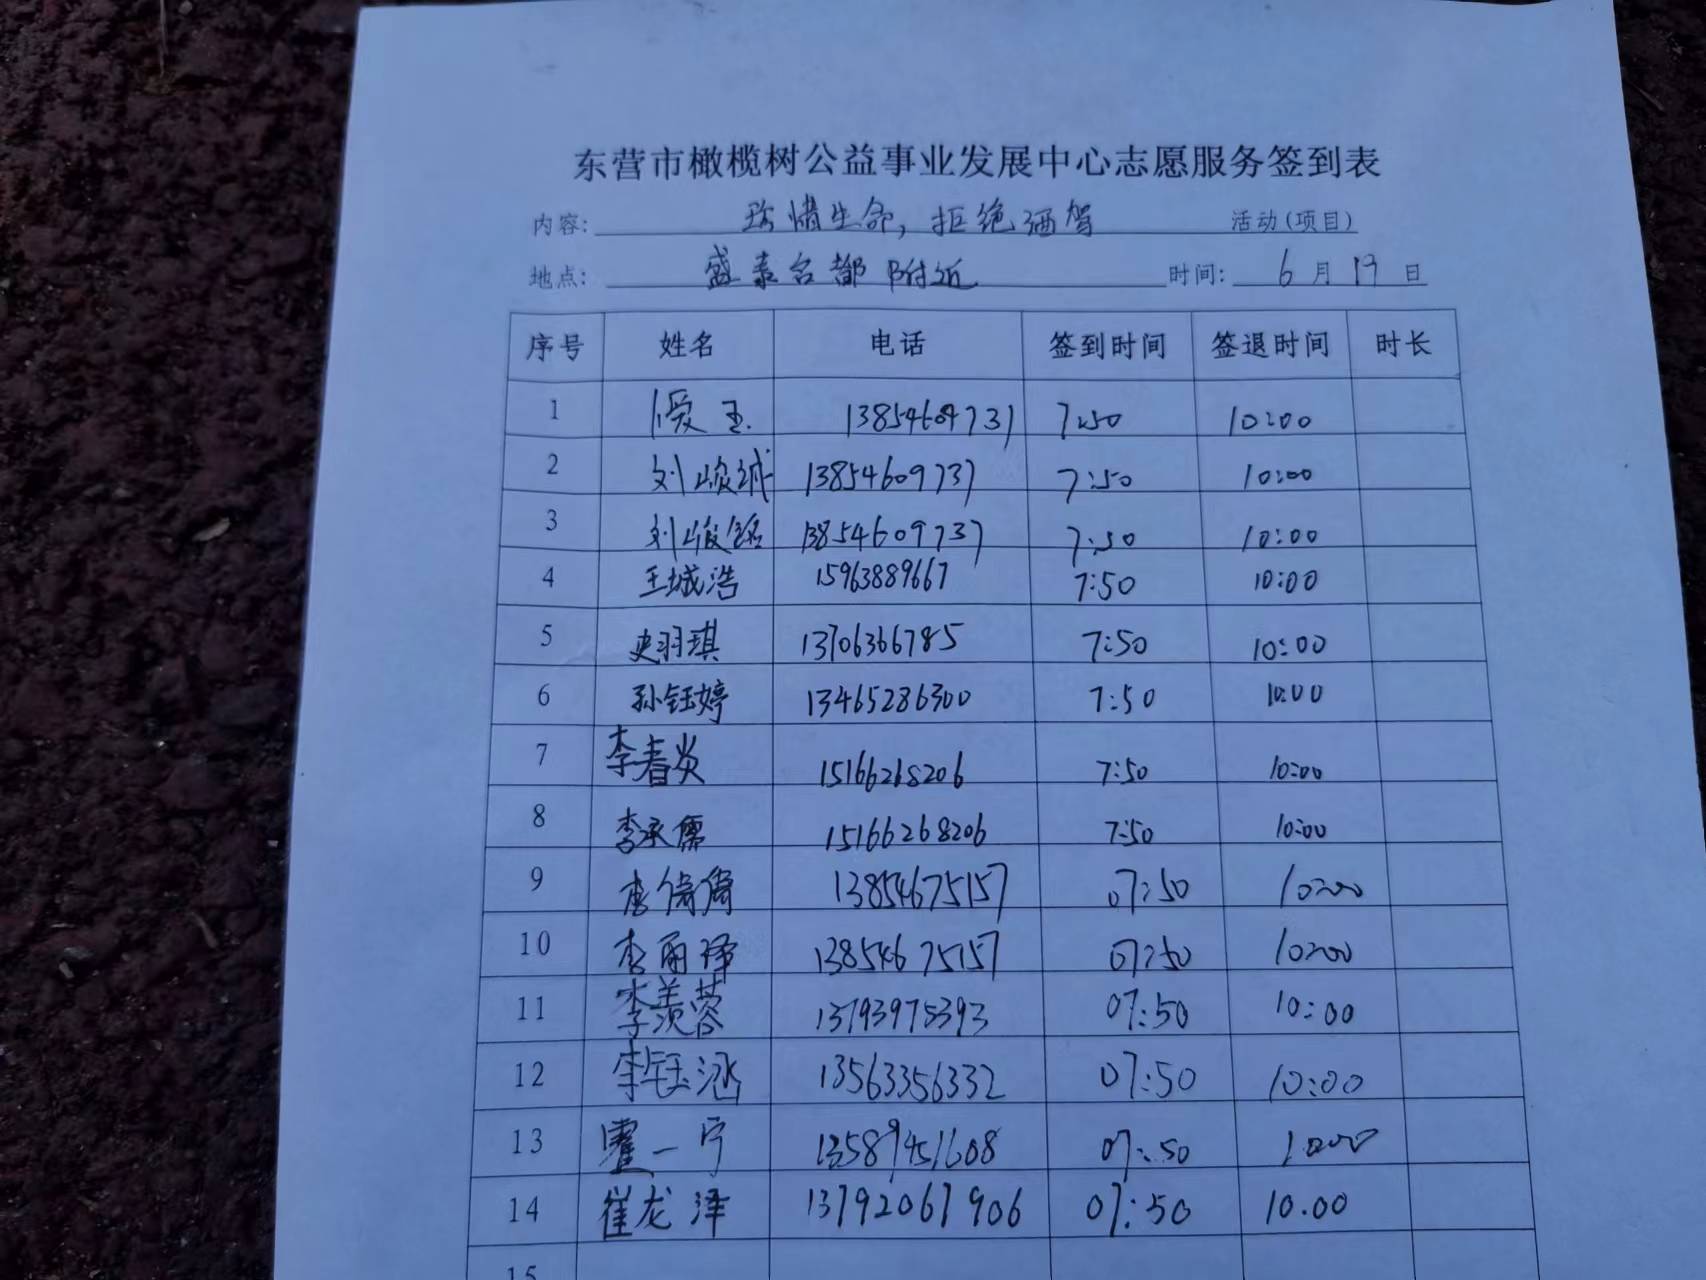 东营市橄榄树公益事业发展中心志愿服务签到表
内容: 珍惜生命, 拒绝酒驾 活动(项目)
地点: 盛泰名都附近 时间: 6月19日
序号 姓名 电话 签到时间 签退时间 时长
1 13854609737 7:50 10:00
2 刘峻诚 13854609737 7:50 10:00
3 刘峻铭 13854609737 7:50 10:00
4 王城浩 15963889667 7:50 10:00
5 史羽琪 13706366785 7:50 10:00
6 孙钰婷 13465286300 7:50 10:00
7 李春炎 15166268206 7:50 10:00
8 李承儒 15166268206 7:50 10:00
9 李倩倩 13854675157 07:50 10:00
10 李雨泽 13854675157 07:50 10:00
11 李羡蓉 13793975393 07:50 10:00
12 李钰涵 13563356332 07:50 10:00
13 霍一宁 13589451608 07:50 10:00
14 崔龙泽 13792067906 07:50 10.00
15